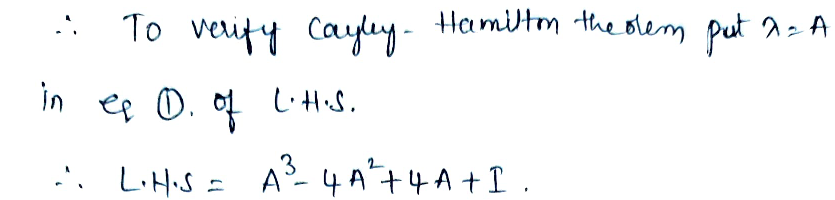 ∴ To verify Cayley- Hamilton theorem put λ = A
in eq ①. of L.H.S.
∴ L.H.S = A³- 4A²+4A+I.